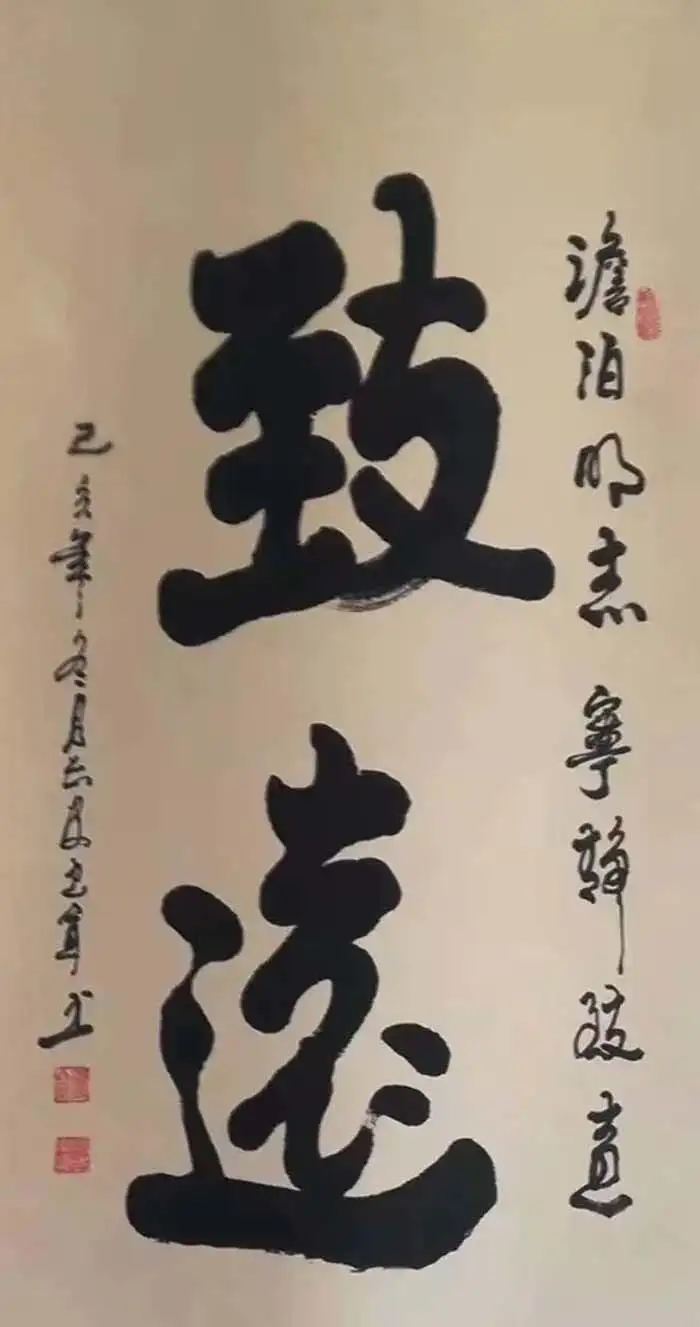 澹泊明志寧靜致遠
致遠
己亥年冬月书